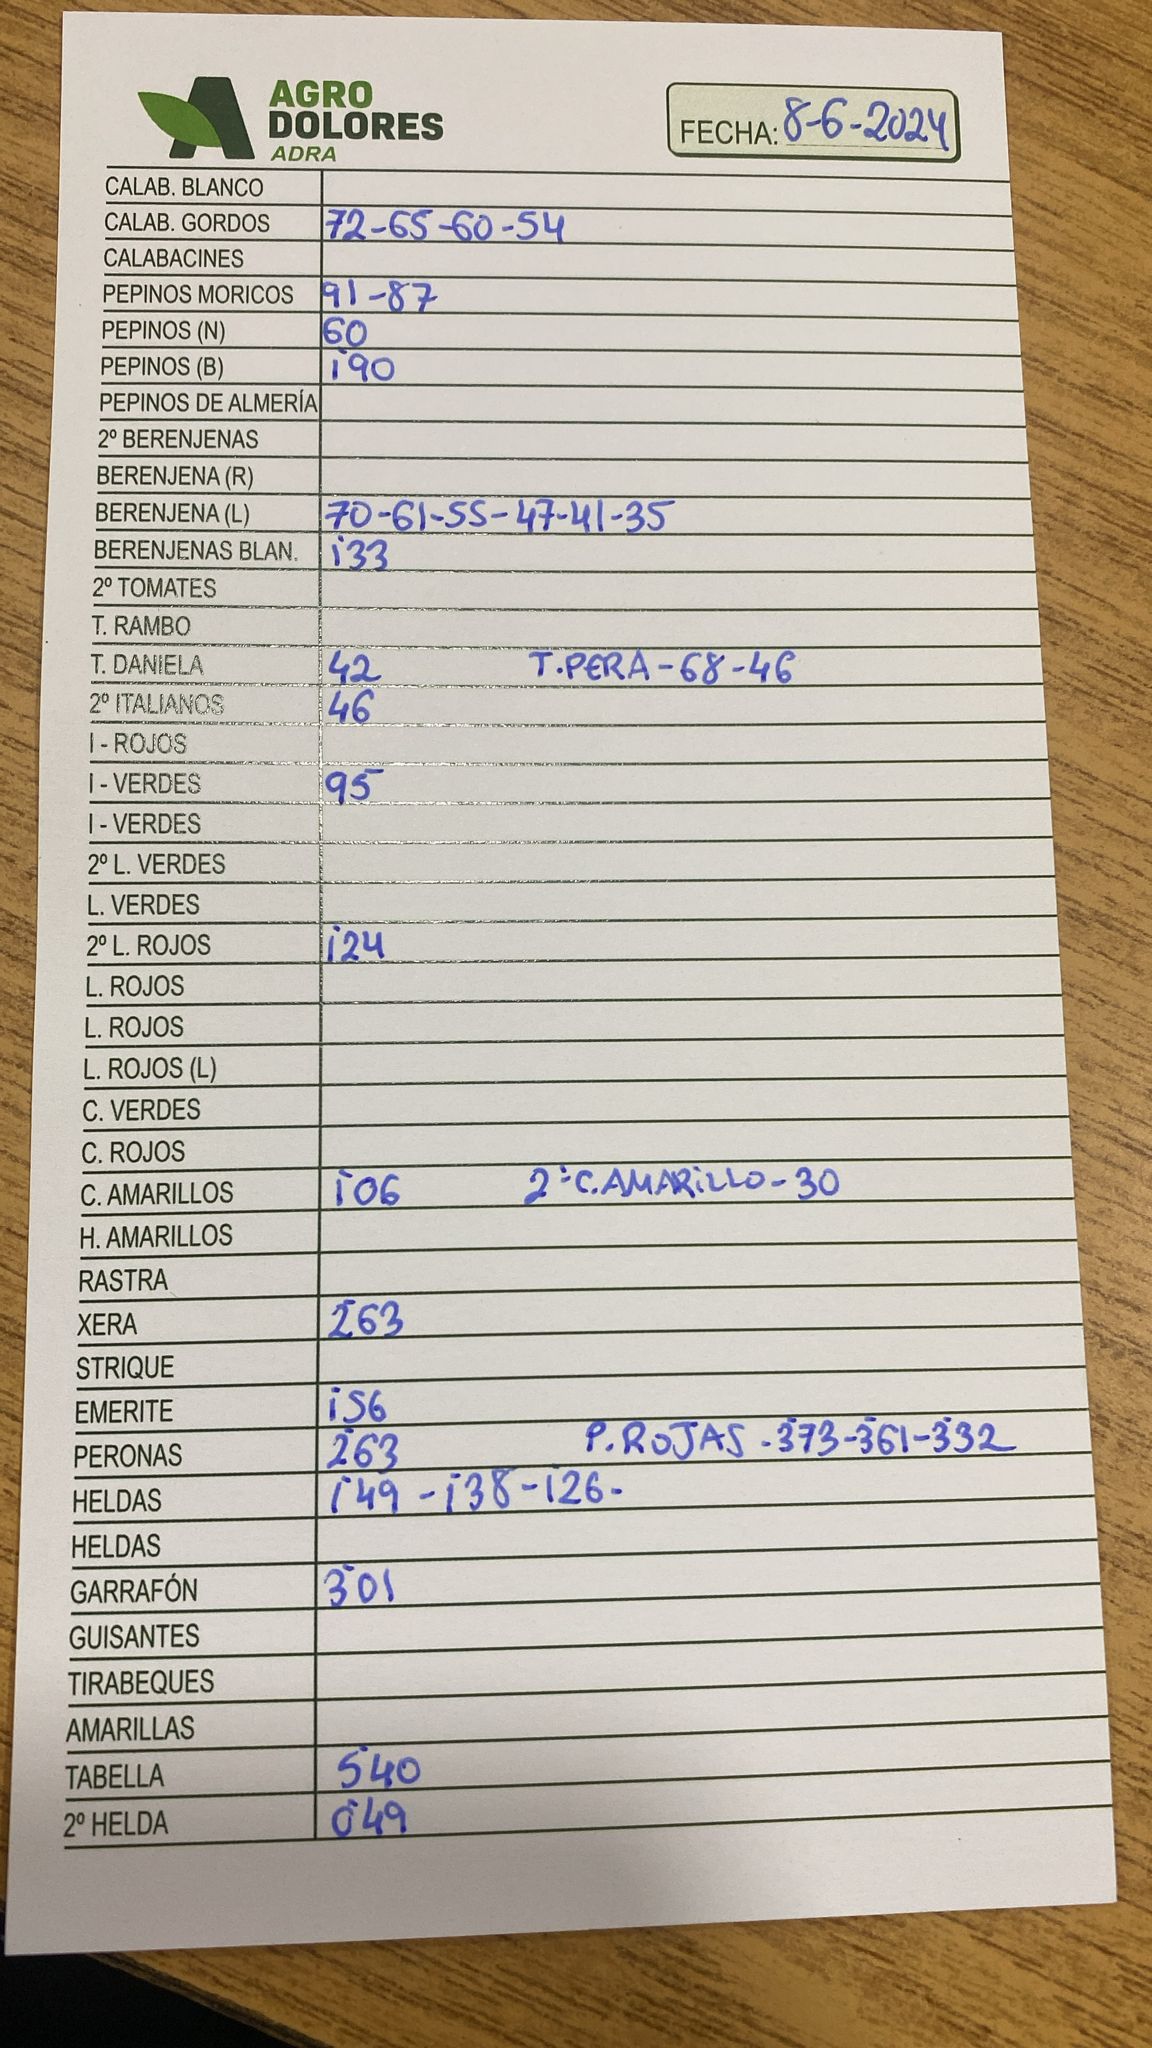 AGRO
DOLORES
ADRA
FECHA: 8-6-2024
CALAB. BLANCO
CALAB. GORDOS 72-65-60-54
CALABACINES
PEPINOS MORICOS 91-87
PEPINOS (N) 60
PEPINOS (B) i90
PEPINOS DE ALMERÍA
2º BERENJENAS
BERENJENA (R)
BERENJENA (L) 70-61-55-47-41-35
BERENJENAS BLAN. i33
2º TOMATES
T. RAMBO
T. DANIELA 42 T.PERA-68-46
2º ITALIANOS 46
I - ROJOS
I - VERDES 95
I - VERDES
2º L. VERDES
L. VERDES
2º L. ROJOS i24
L. ROJOS
L. ROJOS
L. ROJOS (L)
C. VERDES
C. ROJOS
C. AMARILLOS i06 2ª C.AMARiLLO-30
H. AMARILLOS
RASTRA
XERA 2'63
STRIQUE
EMERITE i56
PERONAS 2'63 P.ROJAS-3'73-3'61-3'32
HELDAS i49-i38-i26-
HELDAS
GARRAFÓN 3'01
GUISANTES
TIRABEQUES
AMARILLAS
TABELLA 5'40
2º HELDA 0'49